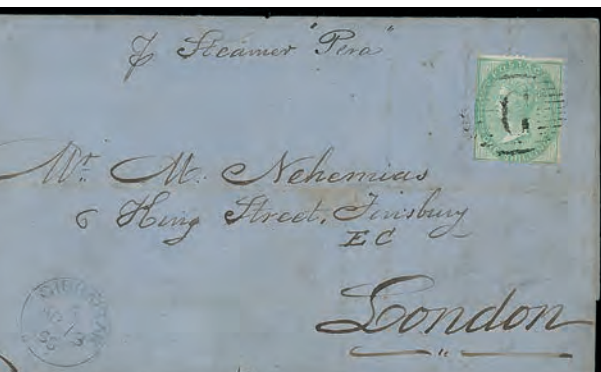 p Steamer "Pera"
G
Mr. M. Nehemias
6 King Street, Finsbury
EC
London
GIBRALTAR